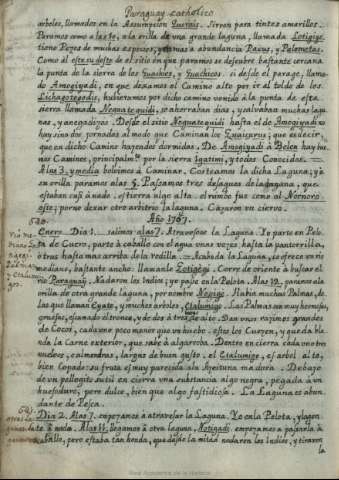 Paraguay catholico
arboles, llamados en la Assumpcion Sirven para tintes amarillos.
Paramos como a las 10, a la orilla de una grande laguna, llamada Lotigigi.
tiene Pezes de muchas especies, y en mas abundancia Pacus, y Palometas.
Como al este su deste de el sitio en que paramos se descubre bastante cercana
la punta de la sierra de los y Yuachicos. si desde el parage, llama-
do Amogiyadi, en que dexamos el Camino alto por ir al toldo de los
Lichagotegodis, huvieramos por dicho camino venido à la punta de esta
sierra llamada Neguateguidi, se ahorraban dias, y salvaban muchas lagu-
nas, y anegadizos. Desde el sitio Neguateguidi hasta el de Amogiyadi no
hay sino dos jornadas al modo que Caminan los que es decir,
que en dicho Camino hazen dos dormidas. De Amogiyadi à Belen hay bue-
nos Caminos, principalmte por la sierra Igatimi, y todos Conocidos.
A las 3, y media bolvimos à Caminar. Costeamos la dicha Laguna, y à
su orilla paramos a las 5. Passamos tres desagues de lagunas, que
estaban casi à nado. es tierra algo alta. el rumbo fue como al Nornoro-
este; por no dexar otro arbitrio la laguna. Cazaron un ciervo.
Año 1767.
Enero. Dia 1. salimos a las 7. Atravesose la Laguna. Yo parte en Pelo-
ta de Cuero, parte à caballo con el agua unas vezes hasta la pantorrilla,
otras hasta mas arriba de la rodilla. Acabada la Laguna, se ofrece un rio
mediano, bastante ancho: llamanle Zotigigi. Corre de oriente à buscar el
rio Paraguay. Nadaron los Indios; yo pasè en la Pelota. A las 12, paramos a la
orilla de otra grande laguna, por nombre Nogige. Habia muchas Palmas, de
las que llaman Eyate, y muchos arboles, Etalumigo. Las Palmas son muy hermosas,
gruesas, el tronco, y de dos à tres de alto. Dan unos razimos grandes
de Cocos, cada uno poco menor que un huebo. estos los Cuezen, y queda blan-
da la Carne exterior, que sabe à algarroba. Dentro encierra cada uno tres
nuezes, ò almendras, largas de buen gusto. el Etalumigo, es arbol alto,
bien Copado: su fruta es muy parecida à la Azeituna madura. Debajo
de un pellegito sutil encierra una substancia algo negra, pegada à un
huesezuro, pero dulce, bien que algo fastidiosa. La Laguna es abun-
dante de Pesca.
Dia 2. A las 7. empezamos à atravesar la Laguna. Yo en la Pelota, y la gen-
te à nado. A las 11. llegamos à otra laguna Notigadi. empezamos a pasarla à
caballo, pero estaba tan honda, que desde la mitad nadaron los Indios, y tiraron
la